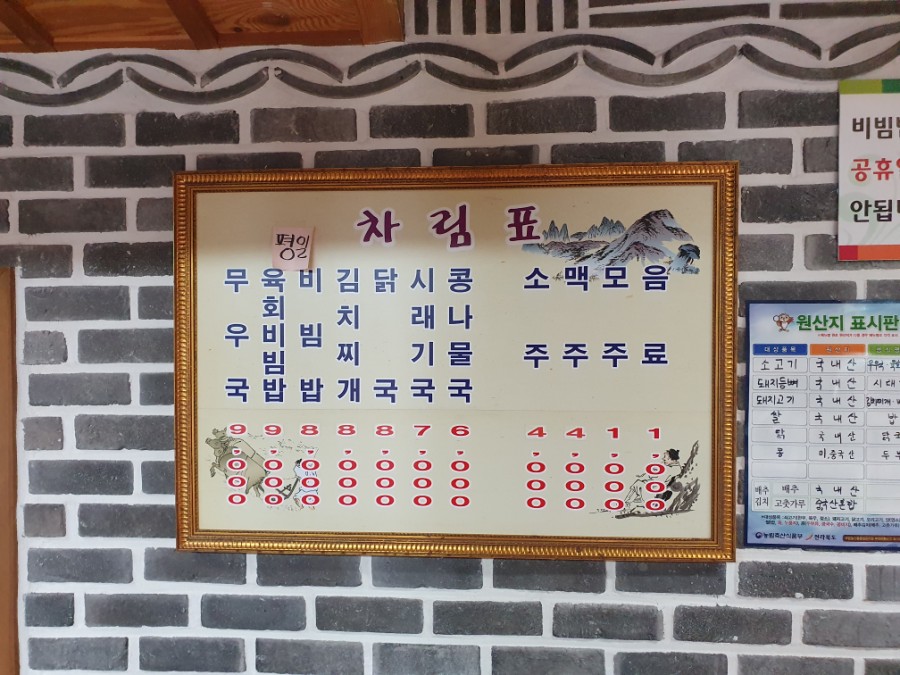 차림표
평일
무우국 9,000
육회비빔밥 9,000
비빔밥 8,000
김치찌개 8,000
닭국 8,000
시래기국 7,000
콩나물국 6,000
소주 4,000
맥주 4,000
모주 1,000
음료 1,000
원산지 표시판
대상품목
소고기 국내산
돼지등뼈 국내산
돼지고기 국내산
쌀 국내산 밥
닭 국내산
콩 미.중국산
배추김치 배추 국내산
고춧가루
농림축산식품부 전라북도